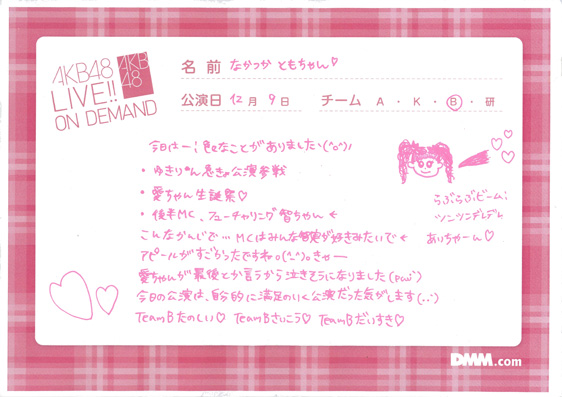 AKB48
LIVE!!
ON DEMAND
AKB
48
名前 なかつか ともちゃん♡
公演日 12月 9日 チーム A・K・B・研
今日はー!色なことがありました、(^o^)/
・ゆきりん急きょ公演参戦
・愛ちゃん生誕祭♡
・後半MC、フューチャリング智ちゃん←
こんなかんじで…MCはみんな智実が好きみたいで←
アピールがすごかったですねo(^_^)oきゃー
愛ちゃんが最後とか言うから泣きそうになりました
今日の公演は、自分的に満足のいく公演だった気がします(..;)
TeamBたのしい♡ TeamBさいこう♡ TeamBだいすき♡
らぶらぶビーム;
ツンツンデレデレ
あいちゃーん♡
DMM.com